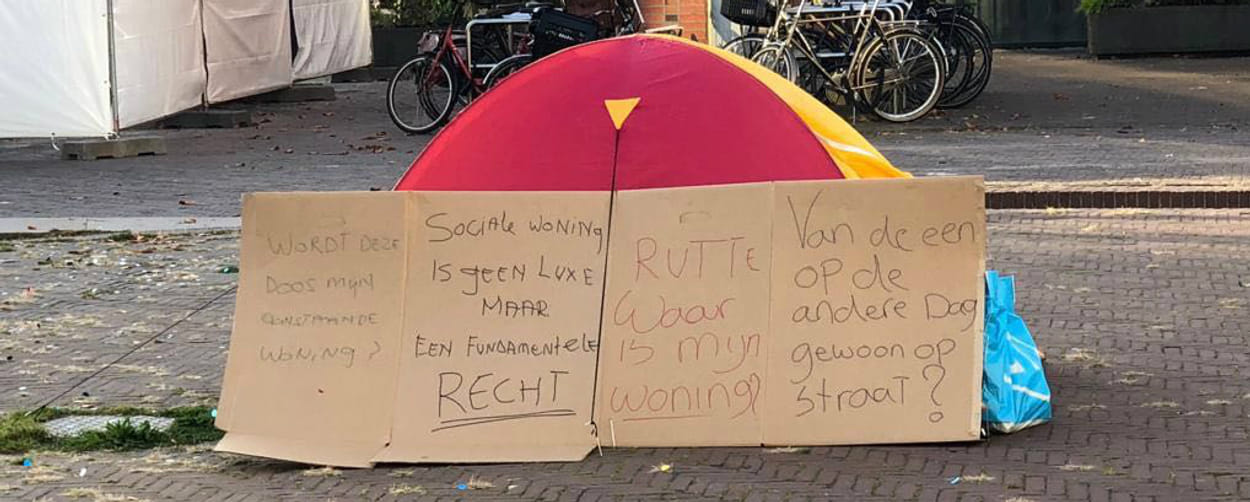 WORDT DEZE
DOOS MIJN
AANSTAANDE
WONING?
SociAle WONiNg
IS gEEN LUXE
MAAR
EEN FUNDAMENTELE
RECHT
RUTTE
Waar
is mijn
woning?
Van de een
op de
andere Dag
gewoon op
straat?